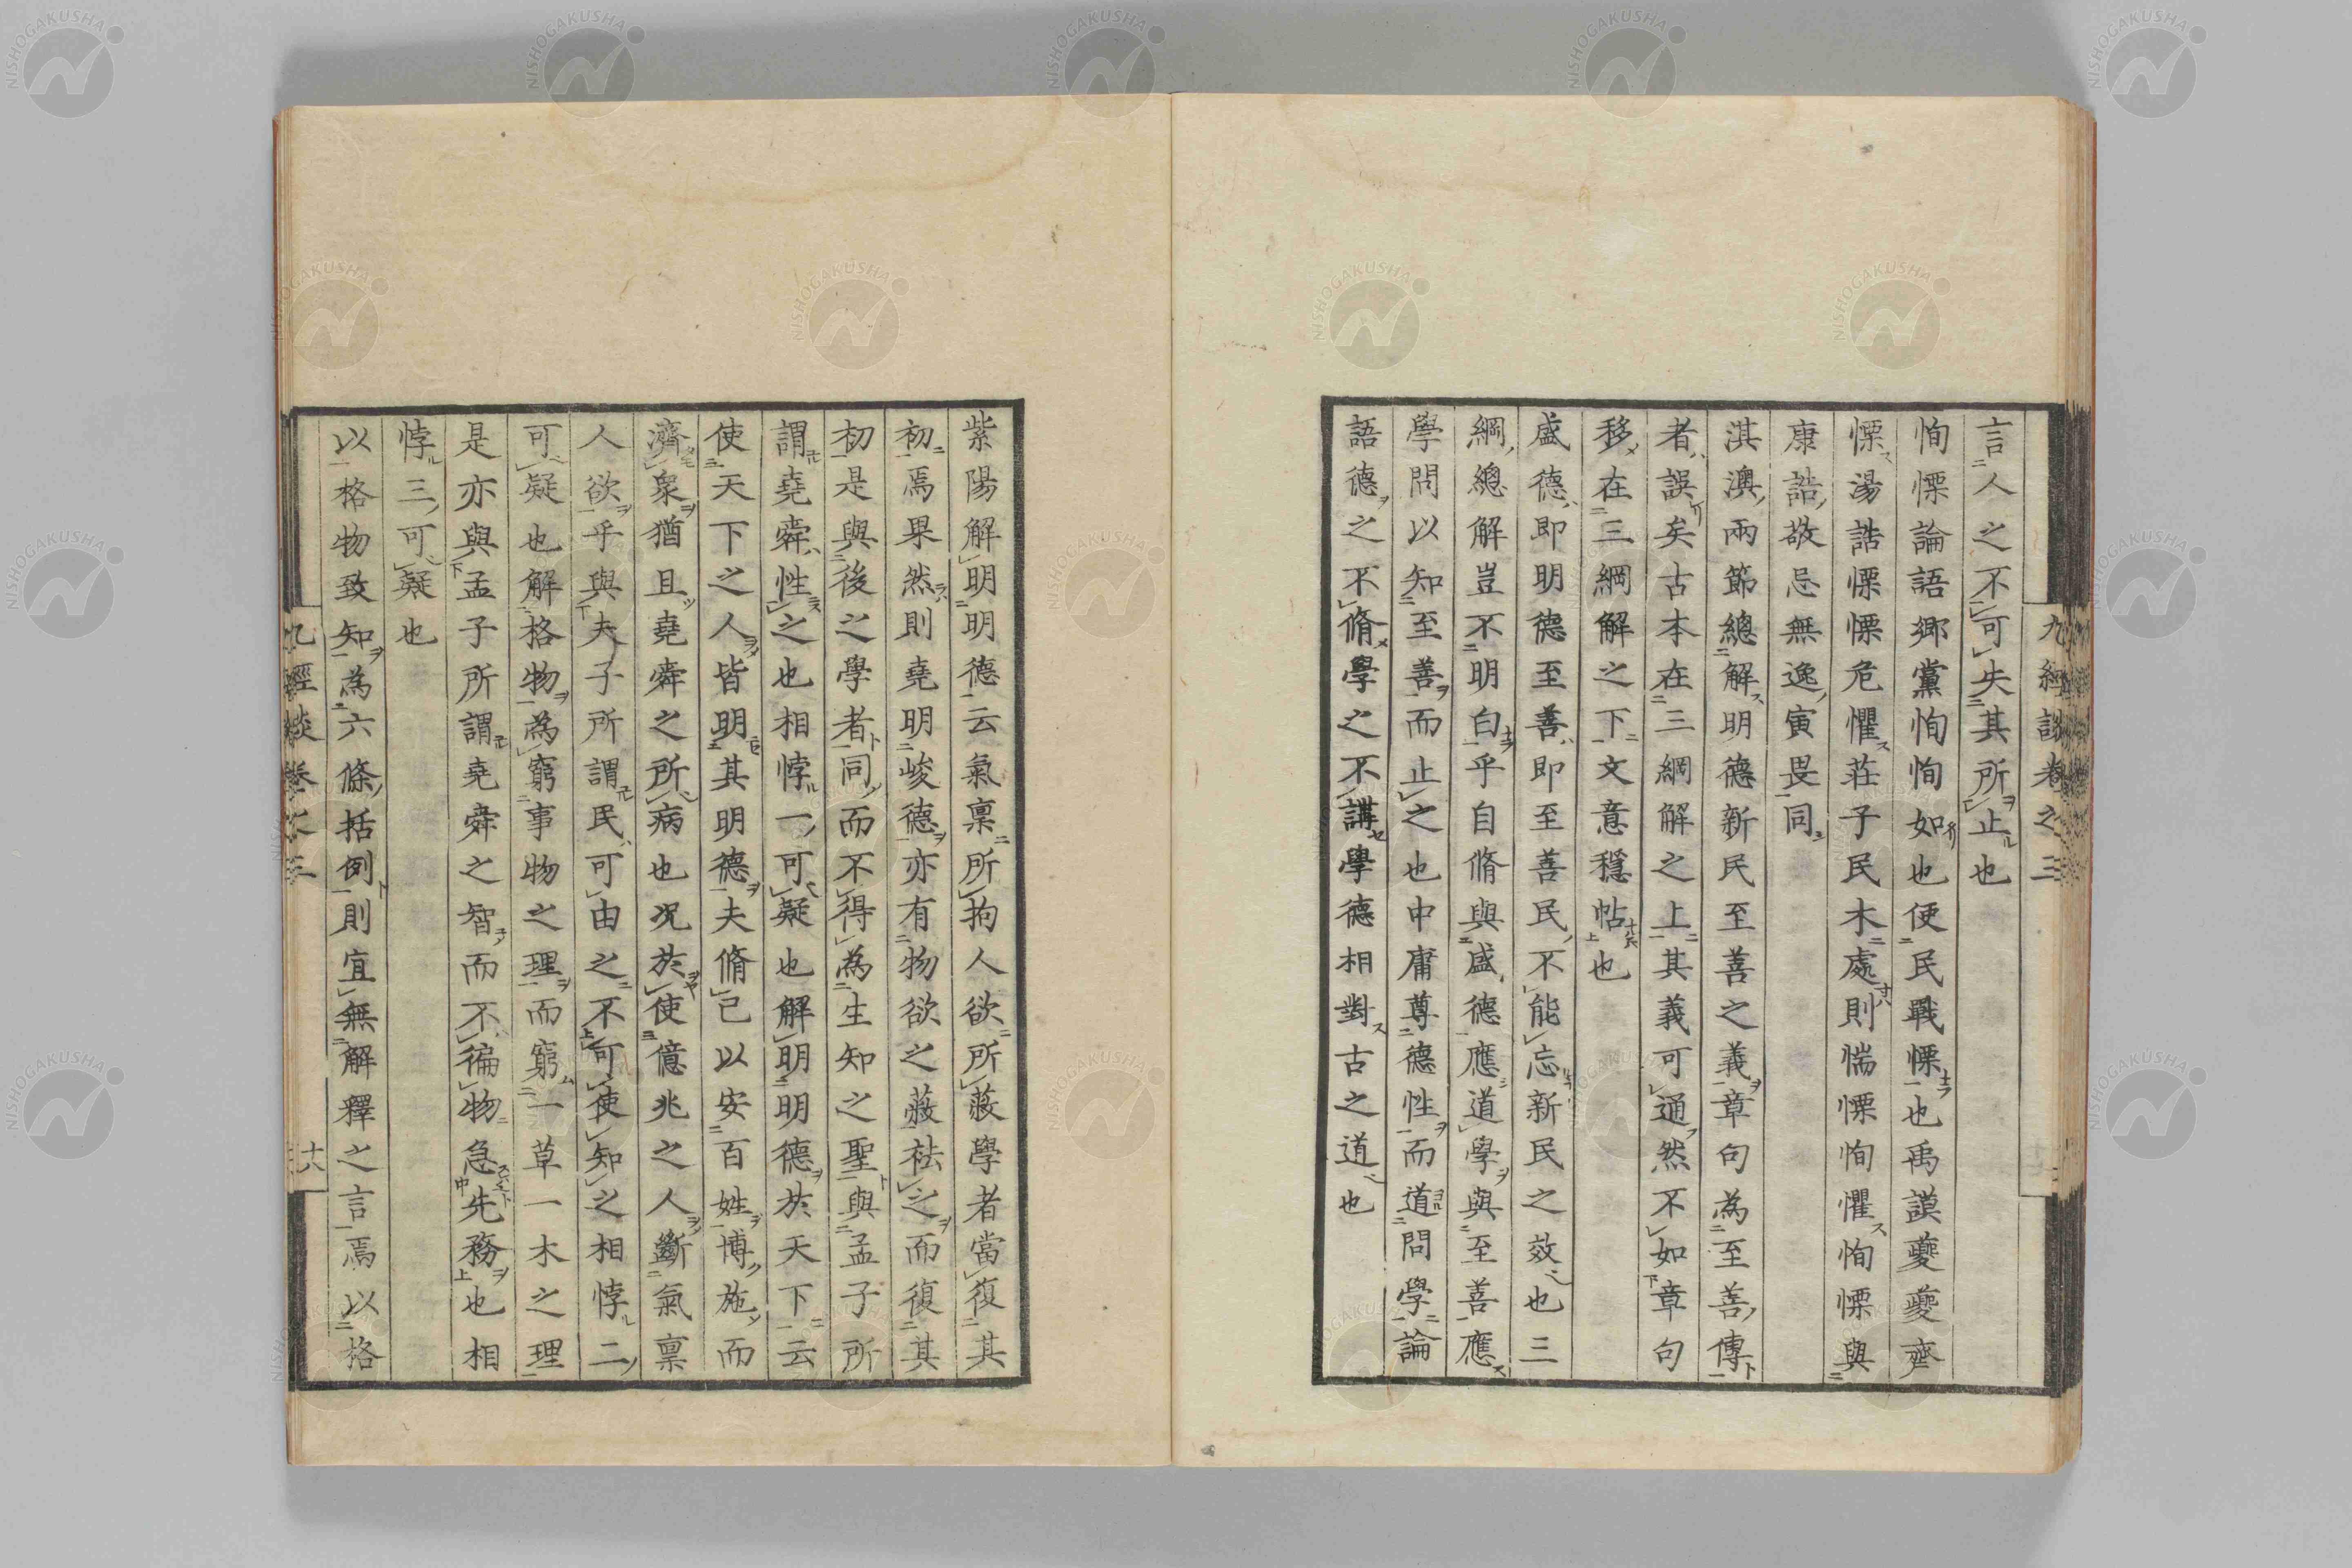 九經談卷之三
言人之不可失其所止也
恂慄論語鄉黨恂恂如也便民戰慄也禹謨夔夔齊
慄湯誥慄慄危懼莊子民木處則惴慄恂懼恂慄與
康誥敬忌無逸寅畏同
淇澳兩節總解明德新民至善之義章句為至善傳
者誤矣古本在三綱解之上其義可通然不如章句
移在三綱解之下文意穩帖也
盛德即明德至善即至善民不能忘新民之效也三
綱總解豈不明白乎自脩與盛德應道學與至善應
學問以知至善而止之也中庸尊德性而道問學論
語德之不脩學之不講學德相對古之道也
紫陽解明明德云氣稟所拘人欲所蔽學者當復其
初焉果然則堯明峻德亦有物欲之蔽祛之而復其
初是與後之學者同而不得為生知之聖與孟子所
謂堯舜性之也相悖一可疑也解明明德於天下云
使天下之人皆明其明德夫脩己以安百姓博施而
濟衆猶且堯舜之所病也況於使億兆之人斷氣稟
人欲乎與夫子所謂民可由之不可使知之相悖二
可疑也解格物為窮事物之理而窮一草一木之理
是亦與孟子所謂堯舜之智而不徧物急先務也相
悖三可疑也
以格物致知為六條括例則宜無解釋之言焉以格
九經談卷之三
十六